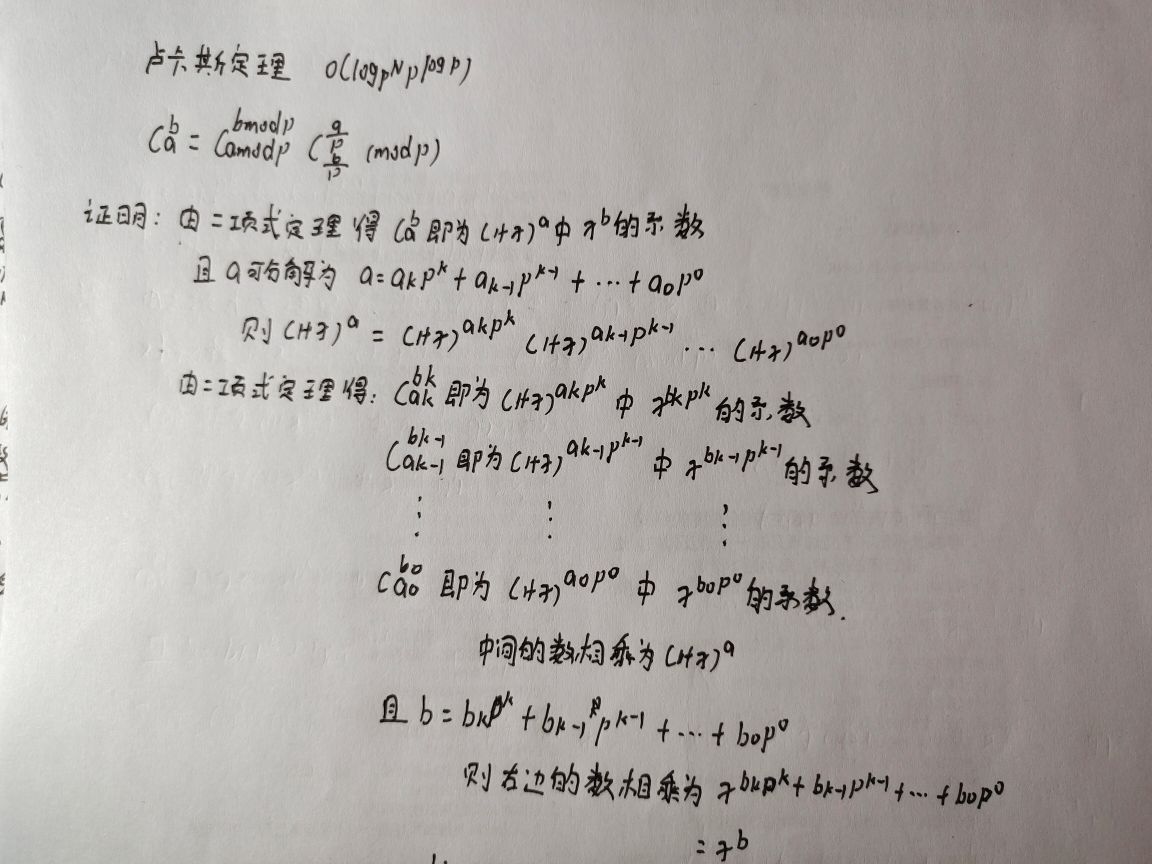 卢卡斯定理 O(log_p N p log p)
C_a^b = C_{a mod p}^{b mod p} C_{b/p}^{a/p} (mod p)
证明: 由二项式定理得 C_a^b 即为 (1+x)^a 中 x^b 的系数
且 a 可分解为 a = a_k p^k + a_{k-1} p^{k-1} + ⋯ + a_0 p^0
则 (1+x)^a = (1+x)^{a_k p^k} (1+x)^{a_{k-1} p^{k-1}} ⋯ (1+x)^{a_0 p^0}
由二项式定理得: C_{a_k}^{b_k} 即为 (1+x)^{a_k p^k} 中 x^{b_k p^k} 的系数
C_{a_{k-1}}^{b_{k-1}} 即为 (1+x)^{a_{k-1} p^{k-1}} 中 x^{b_{k-1} p^{k-1}} 的系数
⋮ ⋮ ⋮
C_{a_0}^{b_0} 即为 (1+x)^{a_0 p^0} 中 x^{b_0 p^0} 的系数.
中间的数相乘为 (1+x)^a
且 b = b_k p^k + b_{k-1} p^{k-1} + ⋯ + b_0 p^0
则右边的数相乘为 x^{b_k p^k + b_{k-1} p^{k-1} + ⋯ + b_0 p^0}
= x^b